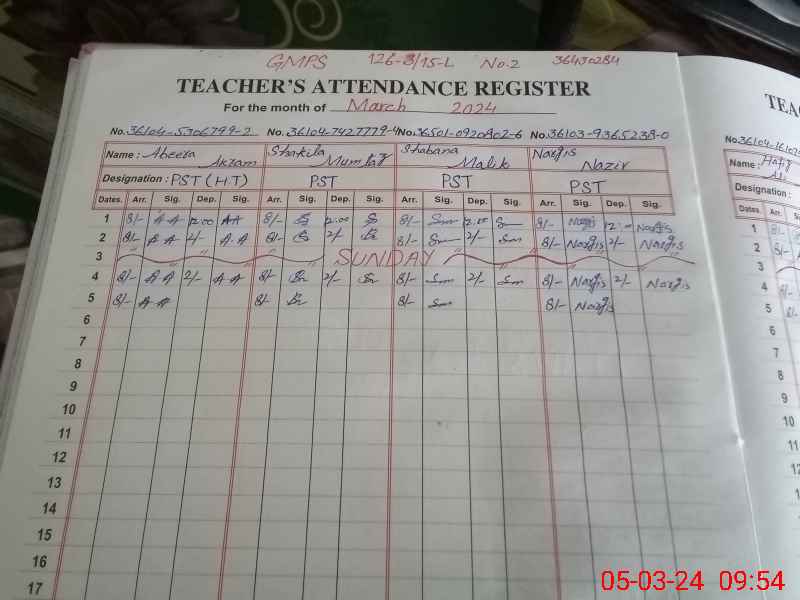 GMPS 126-8/15-L No.2 36430284
TEACHER'S ATTENDANCE REGISTER
For the month of March 2024
No. 36104-5306799-2 No. 36104-7427779-4 No. 36501-0920802-6 No. 36103-9365238-0
Name: Abeera Akram Shakila Mumtaz Shabana Malik Nargis Nazir
Designation: PST (H.T) PST PST PST
Dates. Arr. Sig. Dep. Sig. Arr. Sig. Dep. Sig. Arr. Sig. Dep. Sig. Arr. Sig. Dep. Sig.
1 8/- AA 12:00 AA 8/- 12:00 8/- Sm 12:00 Sm 8/- Nargis 12:00 Nargis
2 8/- AA 2/- A.A 8/- 2/- 8/- Sm 2/- Sm 8/- Nargis 2/- Nargis
3 SUNDAY
4 8/- AA 2/- AA 8/- 2/- 8/- Sm 2/- Sm 8/- Nargis 2/- Nargis
5 8/- AA 8/- 8/- Sm 8/- Nargis
6
7
8
9
10
11
12
13
14
15
16
17
TEA
No. 36104-1610
Name:
Designation:
Dates. Arr. Sig.
1 8/-
2 8/-
3
4 8/-
5 8/-
6
7
8
9
10
11
12
13
14
15
16
05-03-24 09:54